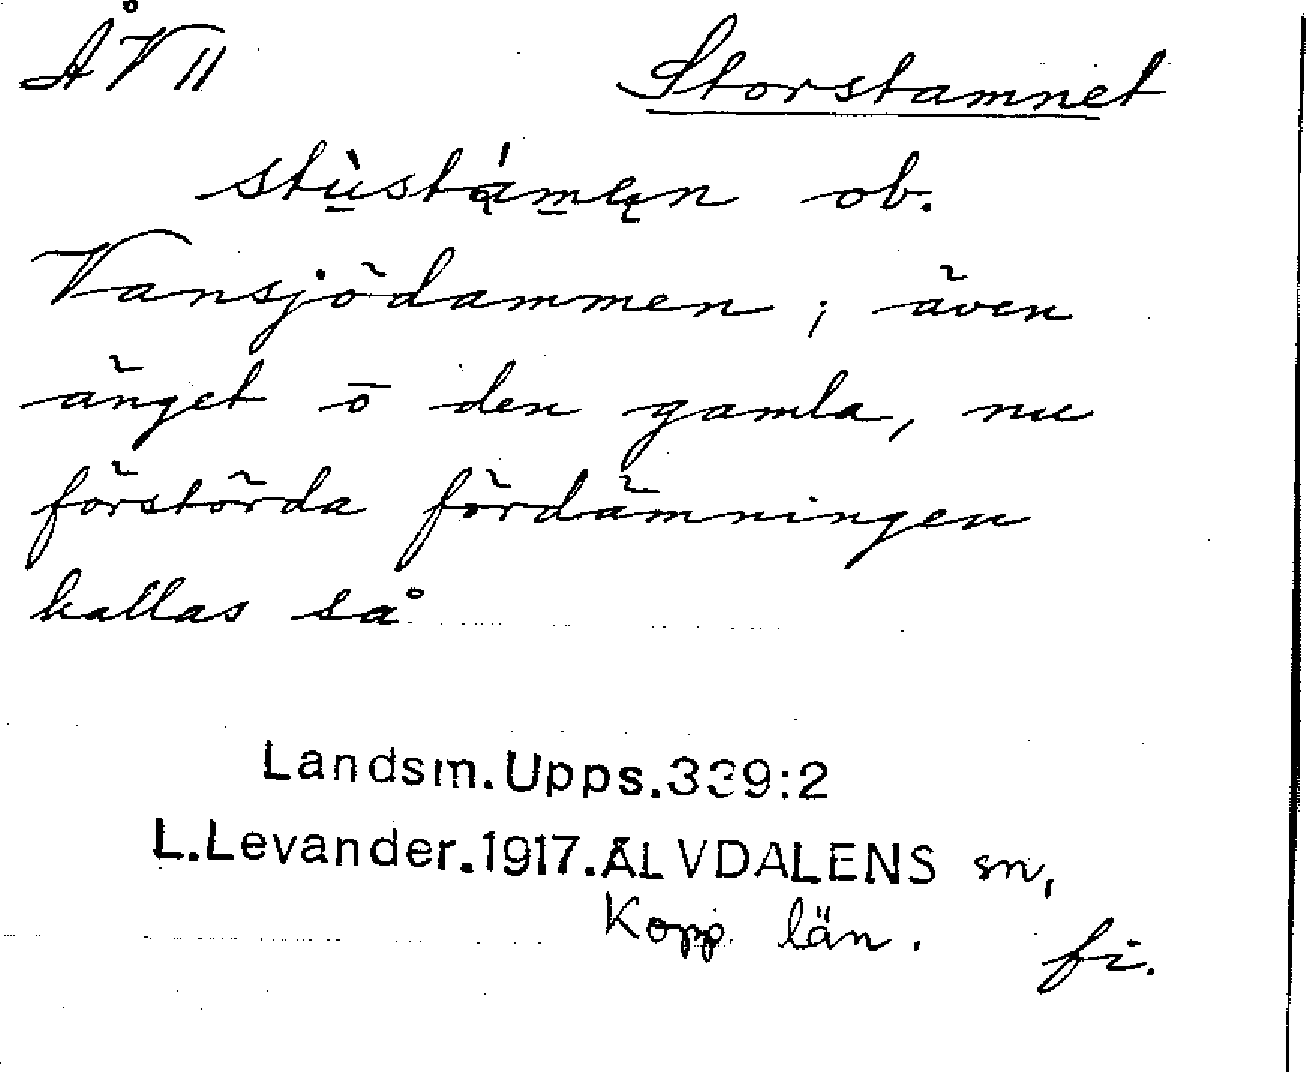 ÅV 11 Storstamnet
stùstą́męn ob.
Vansjödammen; även
änget ö den gamla, nu
förstörda fördämningen
kallas så
Landsm.Upps.339:2
L.Levander.1917.ÄLVDALENS sn,
Kopp. län. fi.